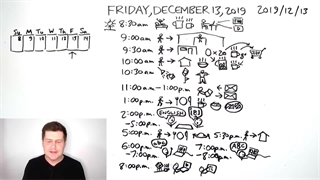 FRIDAY, DECEMBER 13, 2019 2019/12/13
Su M Tu W Th F Sa
8 9 10 11 12 13 14
8:30am
9:00am
9:30am 0×20
10:00am
10:30am
11:00am-1:00p.m.
1:00p.m.
2:00p.m. ENGLISH
-5:00p.m.
5:00p.m. 5:30p.m.
6:00p.m. 7:00p.m. ABC
-7:00p.m. -8:00p.m.
8:00p.m.